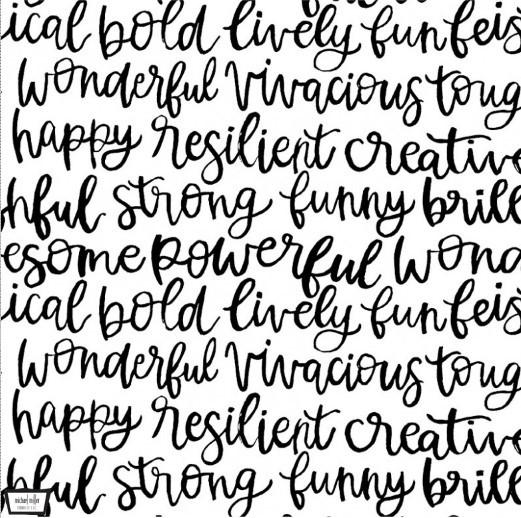 ical bold lively fun feis
wonderful vivacious toug
happy resilient creative
hful strong funny brill
esome powerful wond
ical bold lively fun feis
wonderful vivacious toug
happy resilient creative
hful strong funny brill
michael miller